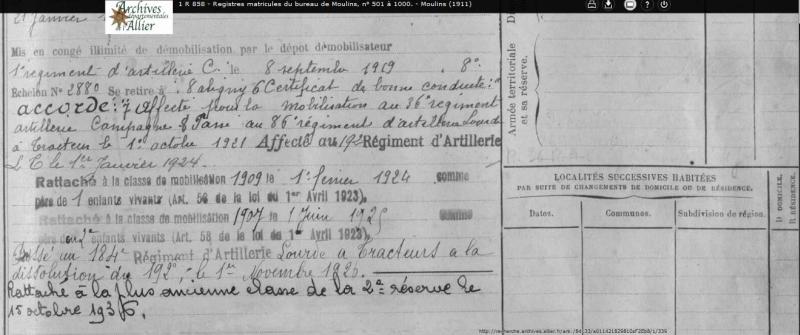 1 R 858 - Registres matricules du bureau de Moulins, n° 501 à 1000. - Moulins (1911)
Archives
départementales
Allier
21 Janvier
Mis en congé illimité de démobilisation par le dépôt démobilisateur
1er régiment d'artillerie C. le 8 septembre 1919 . 8°.
Echelon N° 2880 Se retire à Certificat de bonne conduite :
accordé : Affecté pour la mobilisation au 36e régiment
artillerie Campagne § Passé au 86e régiment d'artillerie Lourde
à Tracteur le 1er octobre 1921 Affecté au 192 Régiment d'Artillerie
L C le 1er Janvier 1924.
Rattaché à la classe de mobilisation 1909 le 1er février 1924 comme
père de 1 enfants vivants (Art. 58 de la loi du 1er Avril 1923).
Rattaché à la classe de mobilisation 1907 1 Juin 1925 comme
père de 2 enfants vivants (Art. 58 de la loi du 1er Avril 1923).
Passé au 184e Régiment d'Artillerie Lourde à Tracteurs à la
dissolution du 192e, le 1er Novembre 1926.
Rattaché à la plus ancienne classe de la 2e réserve le
15 octobre 1936.
Armée territoriale
et sa réserve.
LOCALITÉS SUCCESSIVES HABITÉES
PAR SUITE DE CHANGEMENTS DE DOMICILE OU DE RÉSIDENCE.
Dates.
Communes.
Subdivision de région.
D. DOMICILE,
R. RÉSIDENCE.